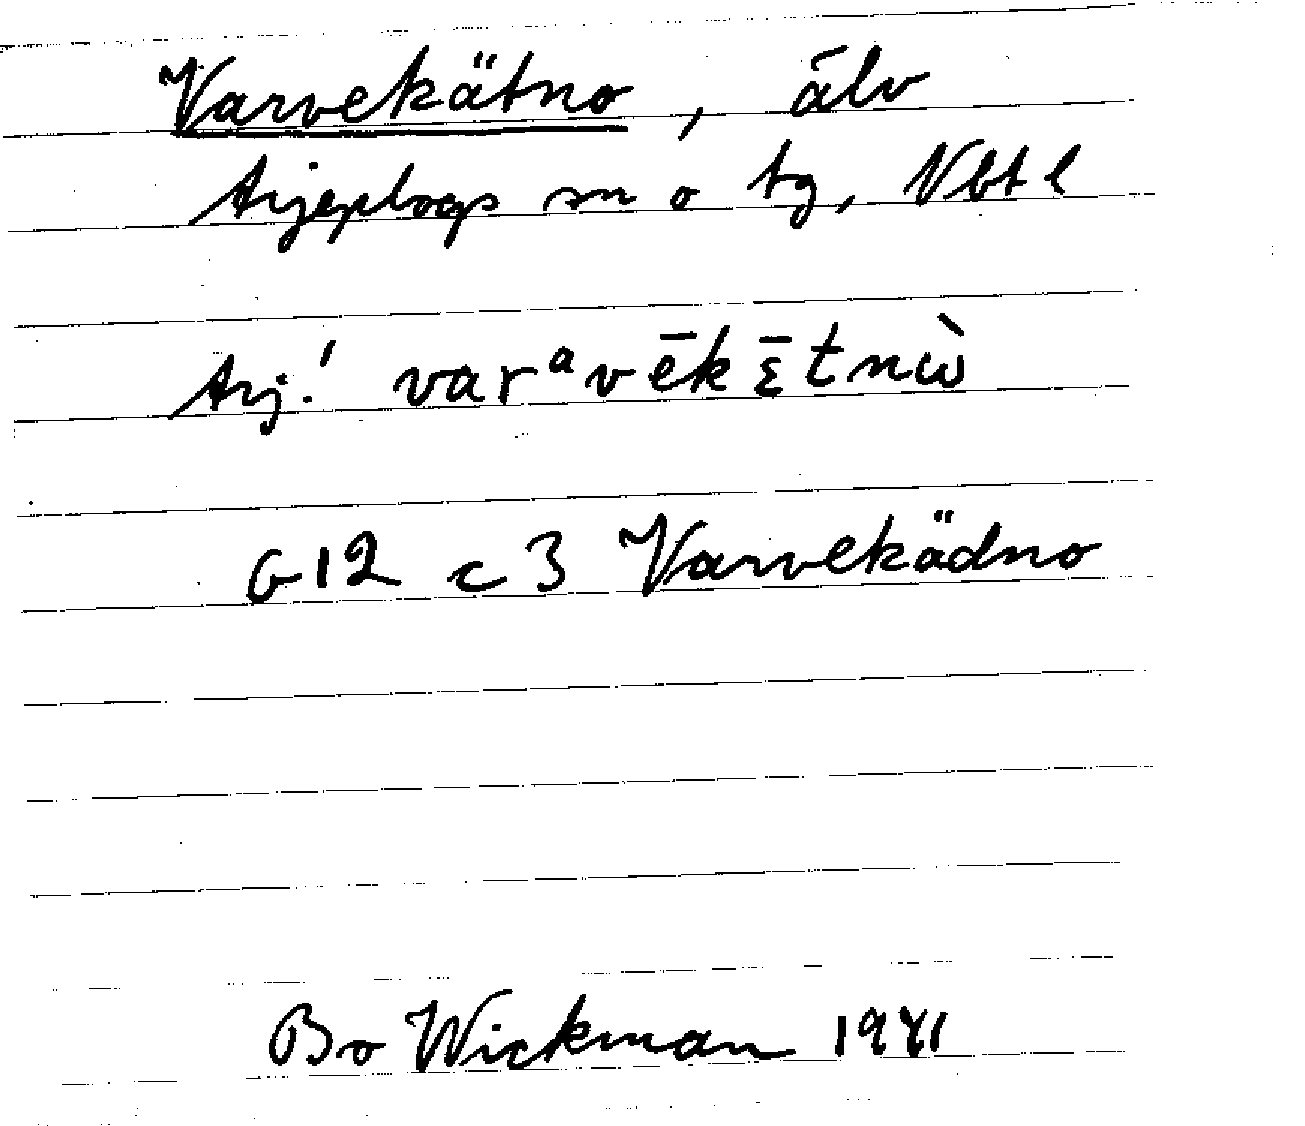 Varvekätno, älv
Arjeplogs sn o tg, Vbt l
Arj.! varᵃvēkε̨̄tnὼ
G12 c 3 Varvekädno
Bo Wickman